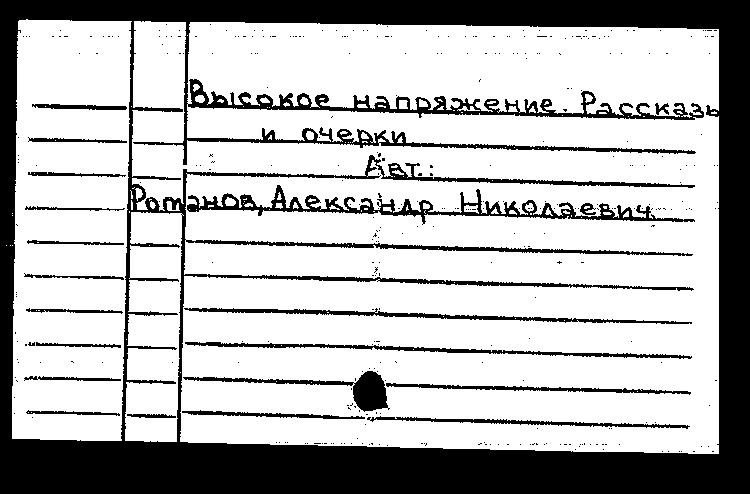 Высокое напряжение. Рассказы
и очерки
Авт.:
Романов, Александр Николаевич.